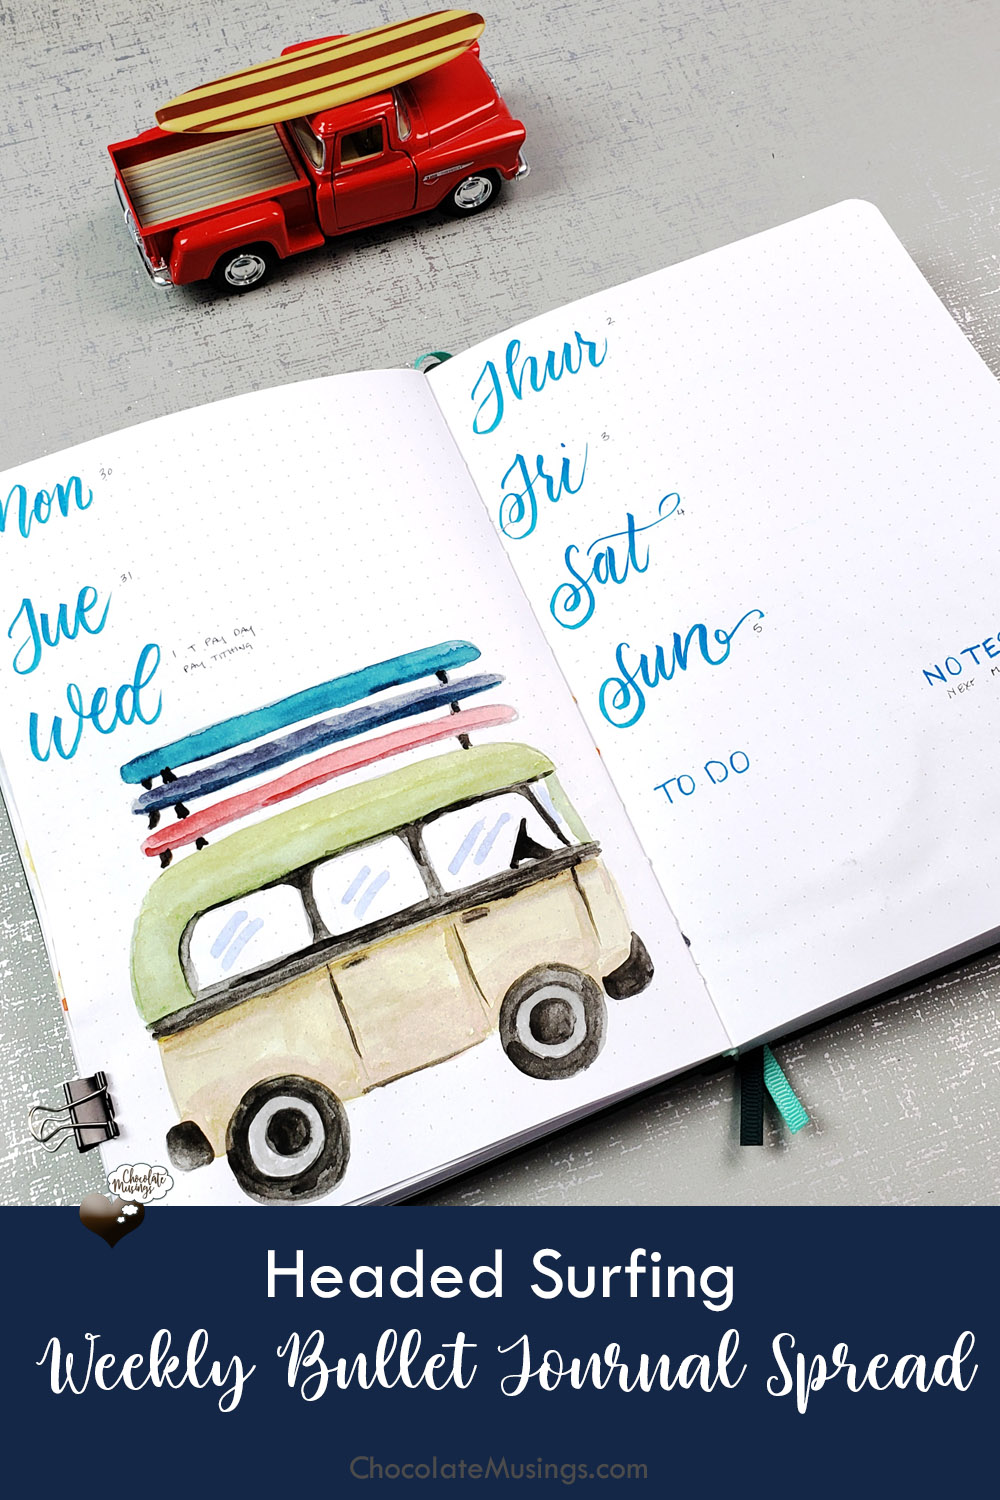 Mon 30
Tue 31
Wed 1 T PAY DAY
PAY TITHING
Thur 2
Fri 3
Sat 4
Sun 5
TO DO
NOTES
NEXT
Chocolate
Musings
Headed Surfing
Weekly Bullet Journal Spread
ChocolateMusings.com